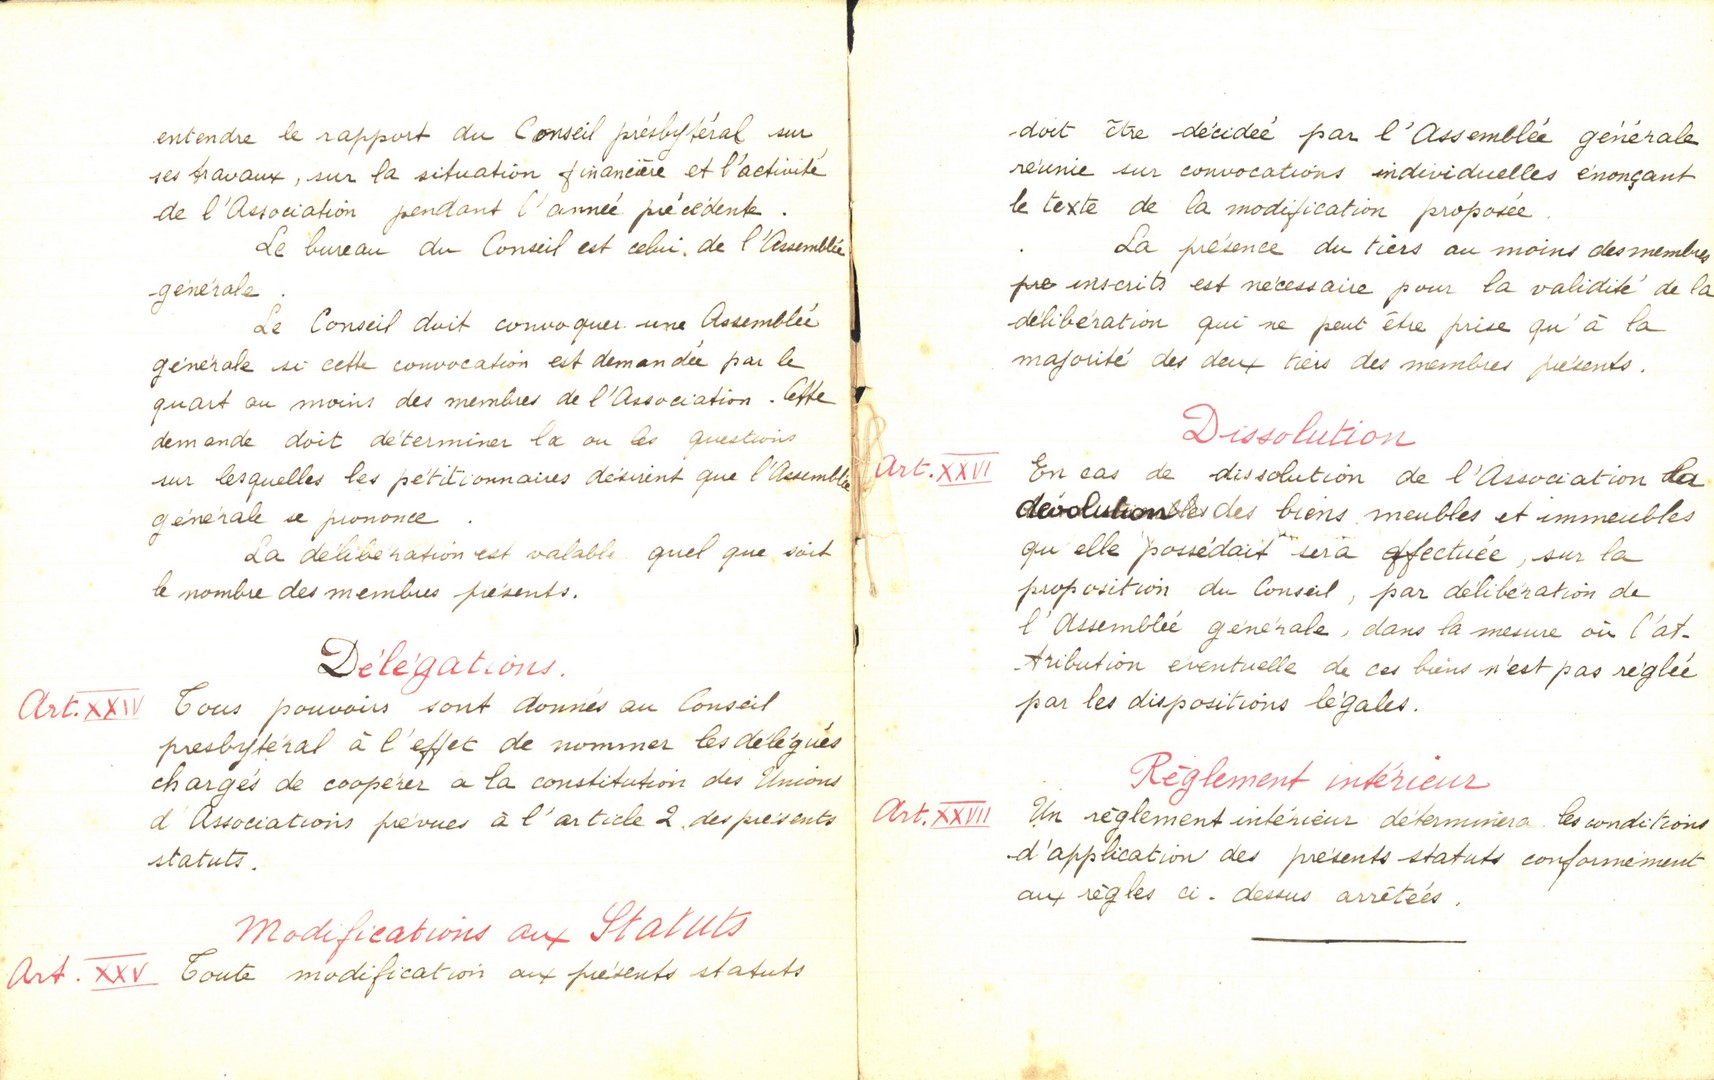 entendre le rapport du Conseil presbytéral sur
ses travaux, sur la situation financière et l'activité
de l'Association pendant l'année précédente.
Le bureau du Conseil est celui de l'Assemblée
générale.
Le Conseil doit convoquer une Assemblée
générale si cette convocation est demandée par le
quart au moins des membres de l'Association. Cette
demande doit déterminer la ou les questions
sur lesquelles les pétitionnaires désirent que l'Assemblée
générale se prononce.
La délibération est valable quel que soit
le nombre des membres présents.
Délégations.
Art. XXIV Tous pouvoirs sont donnés au Conseil
presbytéral à l'effet de nommer les délégués
chargés de coopérer a la constitution des Unions
d'Associations prévues à l'article 2 des présents
statuts.
Modifications aux Statuts
Art. XXV Toute modification aux présents statuts
doit être décidée par l'Assemblée générale
réunie sur convocations individuelles énonçant
le texte de la modification proposée.
La présence du tiers au moins des membres
pre inscrits est nécessaire pour la validité de la
délibération qui ne peut être prise qu'à la
majorité des deux tiers des membres présents.
Dissolution
Art. XXVI En cas de dissolution de l'Association la
dévolution des biens meubles et immeubles
qu'elle possédait sera effectuée, sur la
proposition du Conseil, par délibération de
l'Assemblée générale, dans la mesure où l'at-
tribution éventuelle de ces biens n'est pas réglée
par les dispositions légales.
Règlement intérieur
Art. XXVII Un règlement intérieur déterminera les conditions
d'application des présents statuts conformément
aux règles ci-dessus arrêtées.